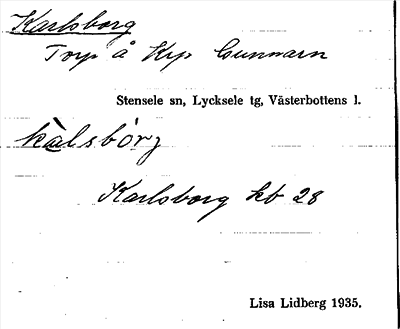 Karlsborg
Torp å Krp Gunnarn
Stensele sn, Lycksele tg, Västerbottens l.
kàlsbòrj
Karlsborg kb 28
Lisa Lidberg 1935.